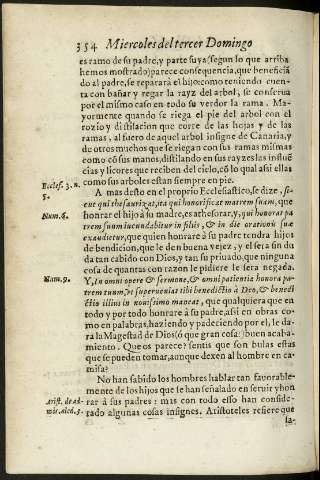 354 Miercoles del tercer Domingo
es ramo de su padre, y parte suya (segun lo que arriba
hemos mostrado) parece consequencia, que beneficiã
do al padre, se reparará el hijo: como teniendo cuen-
ta con bañar y regar la rayz del arbol, se conserua
por el mismo caso en todo su verdor la rama. Ma-
yormente quando se riega el pie del arbol con el
rozio y distilacion que corre de las hojas y de las
ramas, al fuero de aquel arbol insigne de Canaria, y
de otros muchos que se riegan con sus ramas mismas
como cõ sus manos, distilando en sus rayzes las influẽ
cias y licores que reciben del cielo, cõ lo qual assi ellas
como sus arboles estan siempre en pie.
Eccles. 3. n.
5.
A mas desto en el proprio Ecclesiastico, se dize, si-
cut qui thesaurizat, ita qui honorificat matrem suam, que
Num. 6.
honrar el hijo à su madre, es athesorar, y, qui honorat pa
trem suum iucundabitur in filiis, & in die orationis suæ
exaudietur, que quien honrare à su padre tendra hijos
de bendicion, que le den buena vejez, y el sera sin du
da tan cabido con Dios, y tan su priuado, que ninguna
cosa de quantas con razon le pidiere le sera negada.
Num. 9.
Y, in omni opere & sermone, & omni patientia honora pa-
trem tuum, vt superueniat tibi benedictio à Deo, & benedi
ctio illius in nouissimo maneat, que qualquiera que en
todo y por todo honrare à su padre, assi en obras co-
mo en palabras, haziendo y padeciendo por el, le da-
ra la Magestad de Dios (ó que gran cosa!) buen acaba-
miento. Que os parece? sentis que son bulas estas
que se pueden tomar, aunque dexen al hombre en ca-
misa?
No han sabido los hombres hablar tan fauorable-
mente de los hijos que le han señalado en seruir y hon
Arist. de ad-
mir. ascl. 3.
rar à sus padres: mas con todo esso han conside-
rado algunas cosas insignes. Aristoteles refiere que
la-